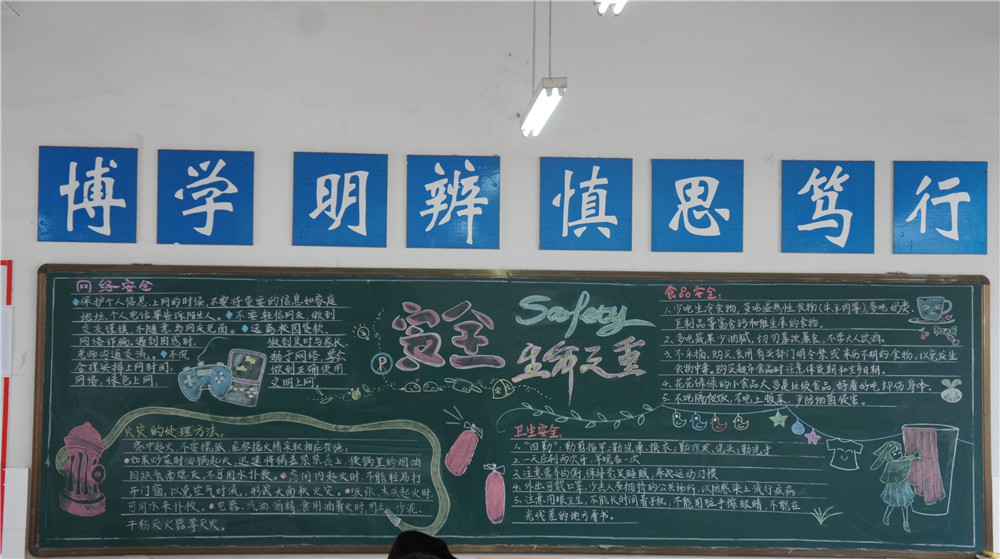 博学 明辨 慎思 笃行
网络安全
保护个人信息,上网的时候,不要将重要的信息如家庭
地址、个人电话等告诉陌生人。不要轻信网友,做到
交友谨慎,不随意与网友见面。远离校园贷款、
网络诈骗,遇到困惑时,做到及时与家长
老师沟通交流。
合理安排上网时间,做到正确使用
网络,绿色上网,文明上网
P
安全
Safety
生命之重
食品安全:
1.少吃生冷食物,
豆制品等富含钙和维生素的食物。
2.多吃蔬果少油腻,切勿暴饮暴食,
3.不采摘、购买、食用有关部门明令禁
食物中毒。购买超市食品时注意保质期和生产日期。
4.花花绿绿的小食品大多是垃圾食品,好看好吃却伤身体。
5.不吃隔夜饭,不吃上顿菜,严防细菌侵害。
火灾的处理方法:
家中起火,不要慌张,应根据火情采取相应措施。
如果炒菜时油锅起火,迅速将锅盖紧紧盖上,使锅里的烟油
因缺氧而熄灭,不可用水扑救。房间内起火时,不能轻易打
开门窗,以免空气对流,形成大面积火灾。纸张、木头起火时,
可用水来扑救。电器、汽油、酒精、食用油着火时,用土、沙泥、
干粉灭火器等灭火。
卫生安全:
1."四勤":勤剪指甲,勤洗澡、换衣,勤理发、洗头,勤洗手
2.一天应刷两次牙,早晚各一次
3.注意营养均衡,保持充足睡眠,养成运动习惯
4.外出可戴口罩,少去人员拥挤的公共场所,以防感染上流行疾病
5.注意用眼卫生,不能长时间看手机,不能用脏手擦眼睛,不能在
光线差的地方看书。